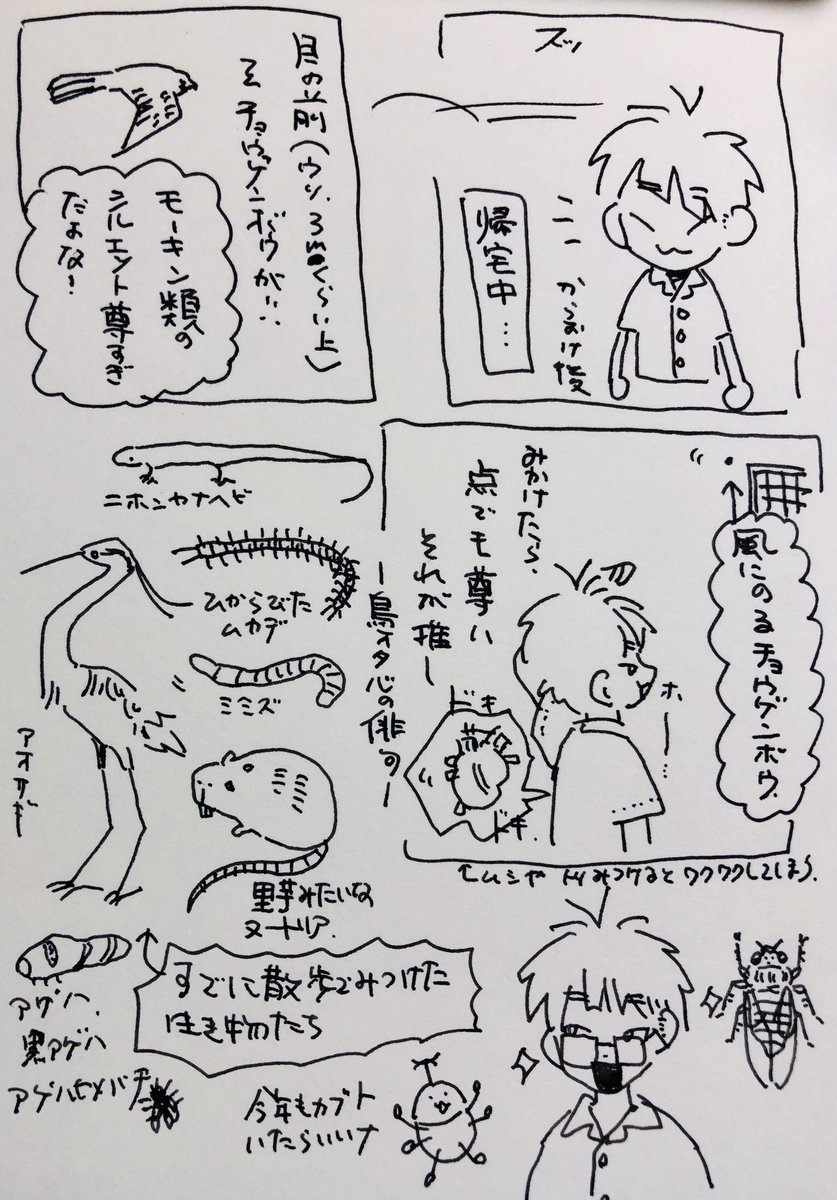 ズッ
からおけ後
帰宅中…
目の前(ウソ、3mくらい上)
を チョウゲンボウが…
モーキン類の
シルエット尊すぎ
だよな!
風にのるチョウゲンボウ
ホー…
みかけたら、
点でも尊い
それが推し
ー鳥オタ心の俳句ー
ドキ
ドキ
ムシや トリみつけるとワクワクしてしまう、
ニホンカナヘビ
ひからびた
ムカデ
ミミズ
アオサギ
里芋みたいな
ヌートリア.
すでに散歩でみつけた
生き物たち
アゲハ、
黒アゲハ
アゲハヒメバチ
今年もカブト
いたらいいナ